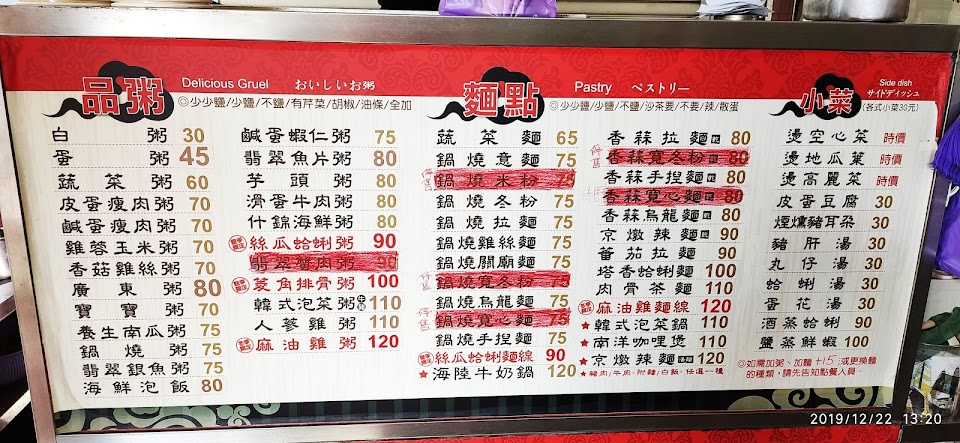 品粥 Delicious Gruel おいしいお粥
◎少少鹽/少鹽/不鹽/有芹菜/胡椒/油條/全加
白粥 30
蛋粥 45
蔬菜粥 60
皮蛋瘦肉粥 70
鹹蛋瘦肉粥 70
雞蓉玉米粥 70
香菇雞絲粥 70
廣東粥 80
寶寶粥 70
養生南瓜粥 75
鍋燒粥 75
翡翠銀魚粥 75
海鮮泡飯 80
鹹蛋蝦仁粥 75
翡翠魚片粥 80
芋頭粥 80
滑蛋牛肉粥 80
什錦海鮮粥 80
絲瓜蛤蜊粥 90
翡翠蟹肉粥 90
菱角排骨粥 100
韓式泡菜粥 110
人參雞粥 110
麻油雞粥 120
麵點 Pastry ペストリー
◎少少鹽/少鹽/不鹽/沙茶要/不要/辣/散蛋
蔬菜麵 65
鍋燒意麵 75
停售 鍋燒米粉 75
鍋燒冬粉 75
鍋燒拉麵 75
鍋燒雞絲麵 75
鍋燒關廟麵 75
鍋燒寬冬粉 75
鍋燒烏龍麵 75
停售 鍋燒寬心麵 75
鍋燒手捏麵 75
絲瓜蛤蜊麵線 90
★海陸牛奶鍋 120
香蒜拉麵 80
停售 香蒜寬冬粉 80
香蒜手捏麵 80
香蒜寬心麵 80
香蒜烏龍麵 80
京燉辣麵 90
蕃茄拉麵 90
塔香蛤蜊麵 100
肉骨茶麵 110
麻油雞麵線 120
★韓式泡菜鍋 110
★南洋咖哩煲 110
★京燉辣麵 120
★豬肉/牛肉。附麵/白飯。任選一樣
小菜 Side dish サイドディッシュ
(各式小菜30元)
燙空心菜 時價
燙地瓜葉 時價
燙高麗菜 時價
皮蛋豆腐 30
煙燻豬耳朵 30
豬肝湯 30
丸仔湯 30
蛤蜊湯 30
蛋花湯 30
酒蒸蛤蜊 90
鹽蒸鮮蝦 100
◎如需加粥、加麵+15或更換麵
的種類，請先告知點餐人員。
2019/12/22 13:20